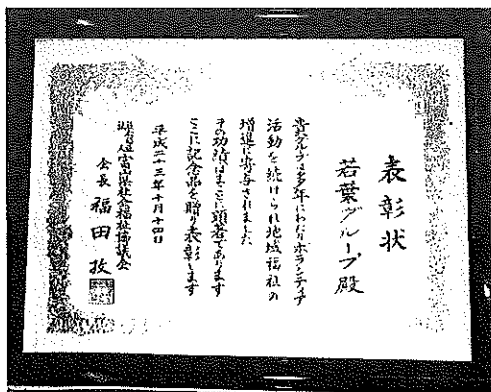 表彰状
若葉グループ殿
貴グループは多年にわたりボランティア
活動を続けられ地域福祉の
増進に寄与されました
その功績はまことに顕著であります
ここに記念品を贈り表彰します
平成二十三年十月十四日
富山県社会福祉協議会
会長 福田孜